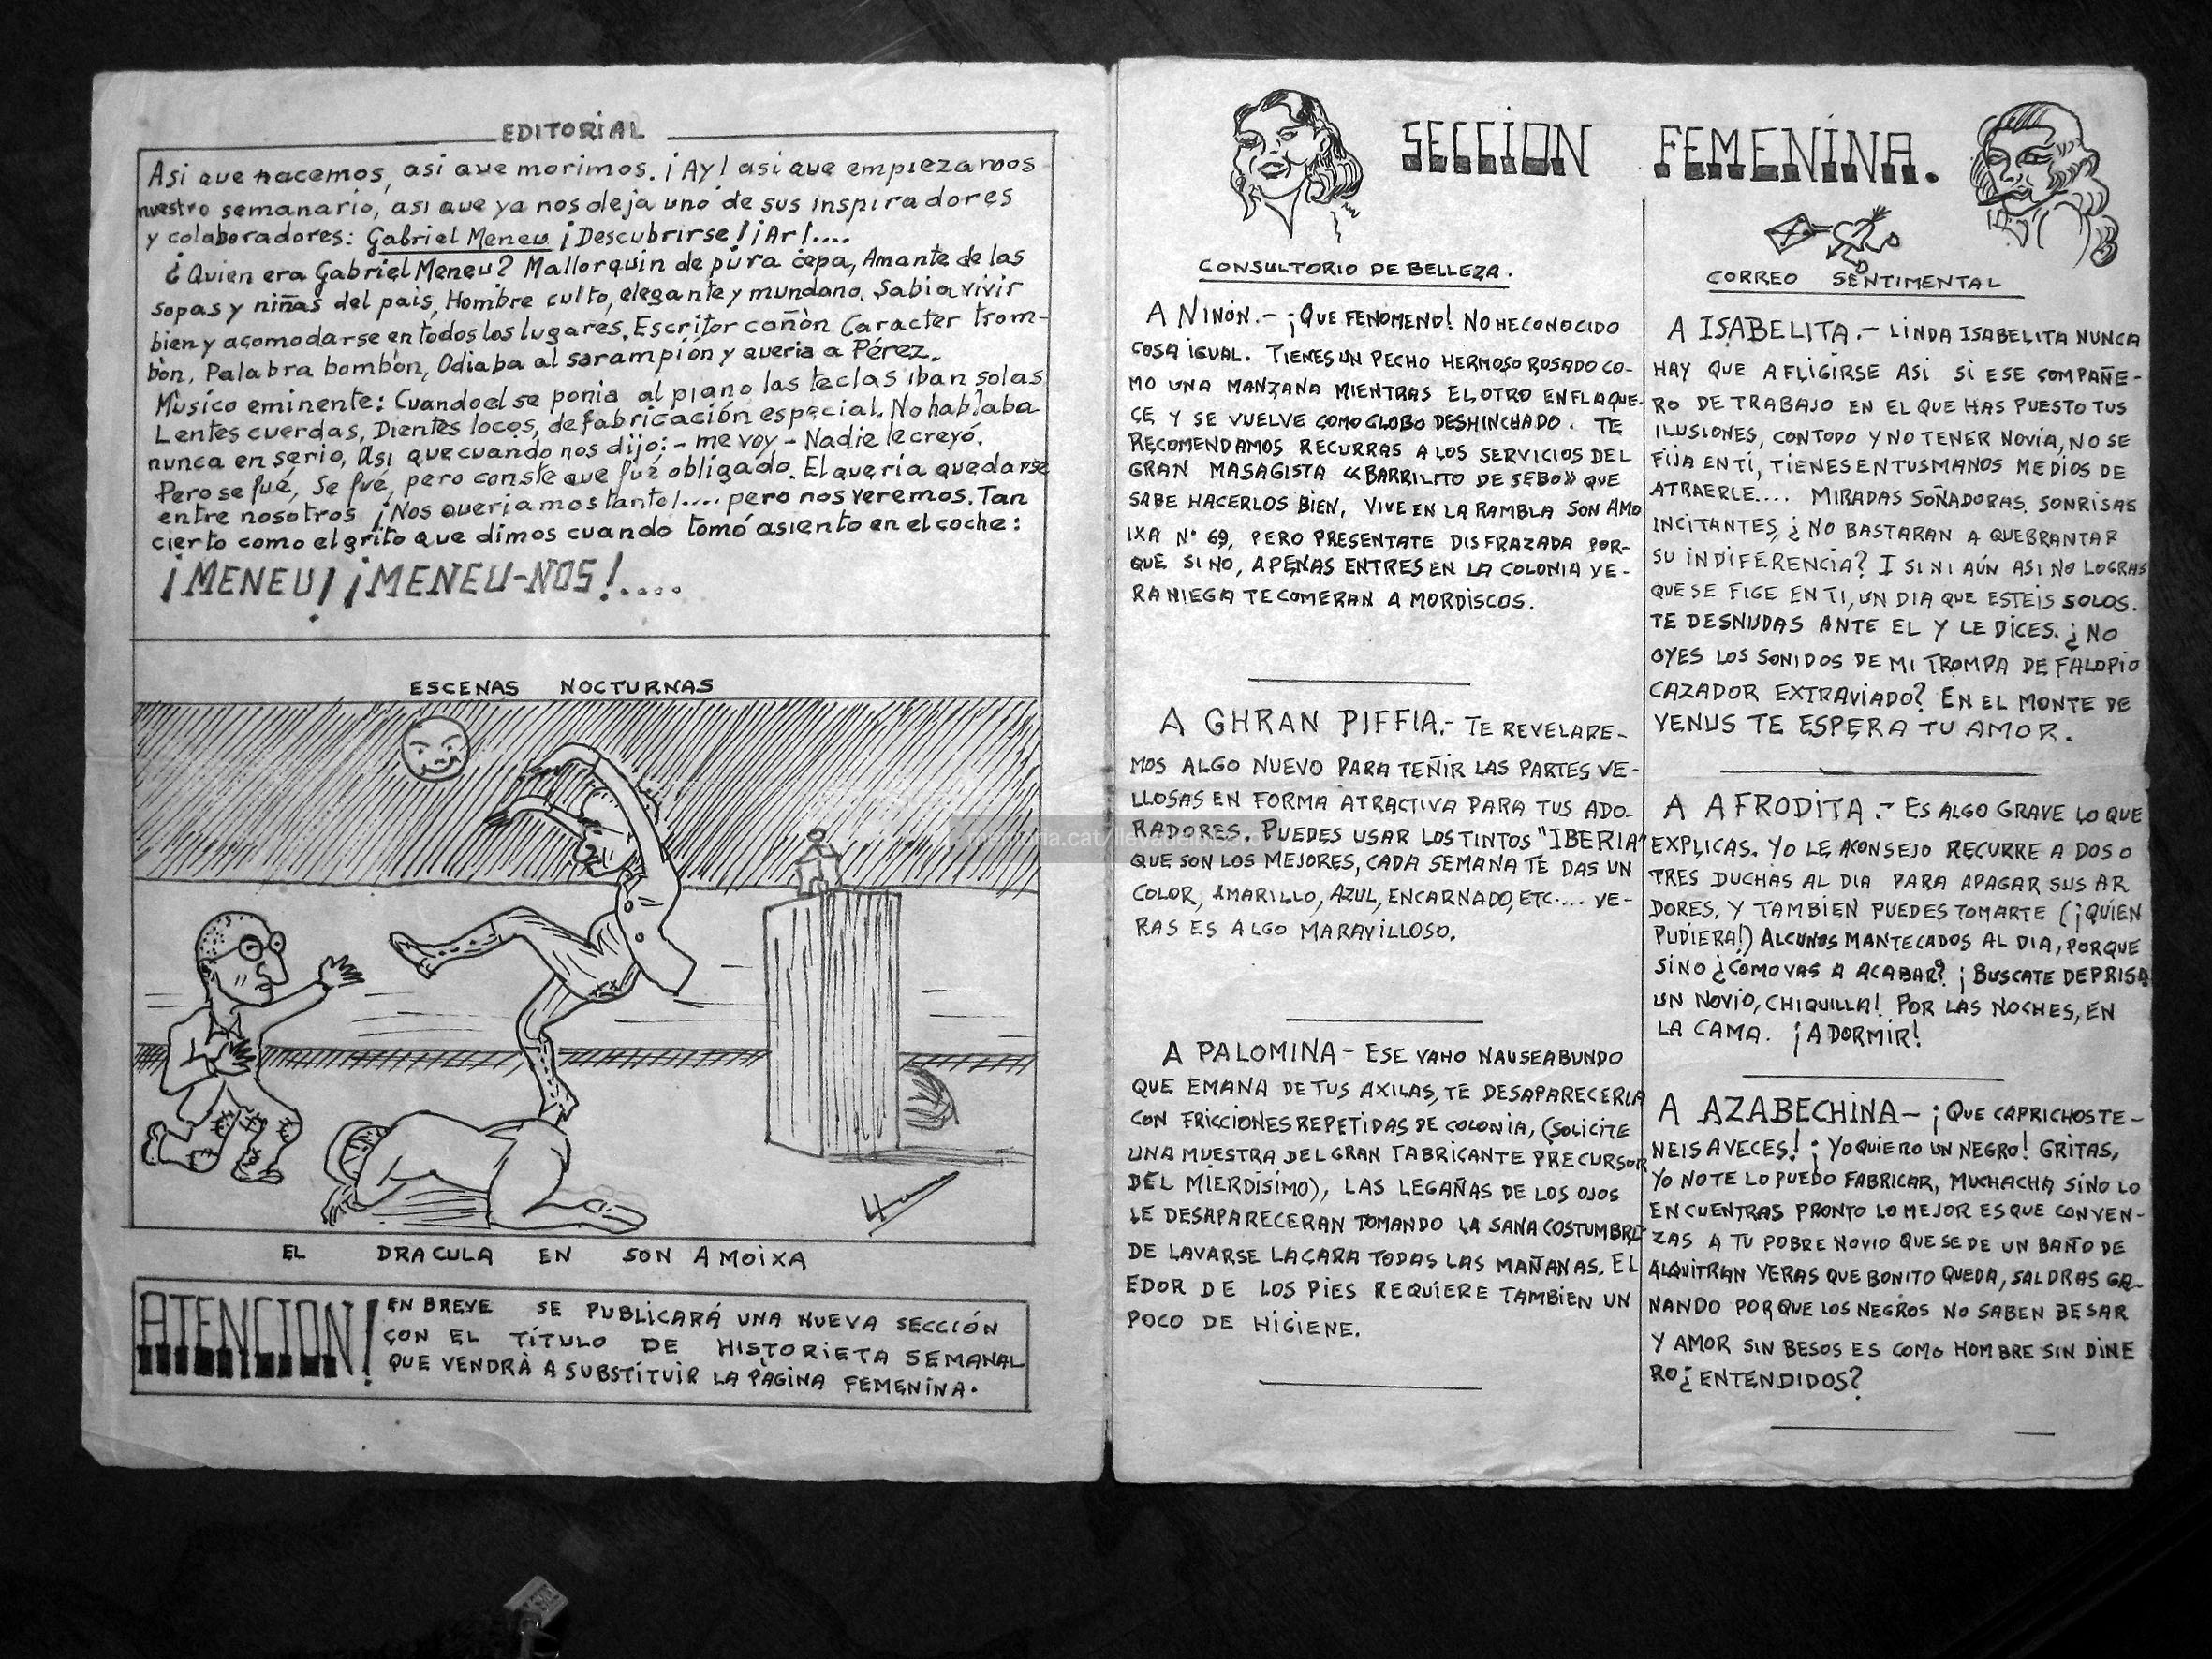 EDITORIAL
Asi que nacemos, asi que morimos. ¡Ay! asi que empiezamos
nuestro semanario, asi que ya nos deja uno de sus inspiradores
y colaboradores: Gabriel Meneu ¡Descubrirse! ¡Ar!....
¿Quien era Gabriel Meneu? Mallorquin de pura cepa, Amante de las
sopas y niñas del pais, Hombre culto, elegante y mundano. Sabia vivir
bien y acomodarse en todos los lugares. Escritor cañón Caracter trom-
bón. Palabra bombón, Odiaba al sarampión y queria a Pérez.
Músico eminente: Cuando el se ponia al piano las teclas iban solas
Lentes cuerdas, Dientes locos, de fabricación especial. No hablaba
nunca en serio, Asi que cuando nos dijo: - me voy - Nadie le creyó.
Pero se fué, Se fué, pero conste que fué obligado. El queria quedarse
entre nosotros ¡Nos queriamos tanto!.... pero nos veremos. Tan
cierto como el grito que dimos cuando tomó asiento en el coche:
¡MENEU! ¡MENEU-NOS!....
ESCENAS NOCTURNAS
EL DRACULA EN SON AMOIXA
ATENCION!
EN BREVE SE PUBLICARÁ UNA NUEVA SECCIÓN
CON EL TÍTULO DE HISTORIETA SEMANAL
QUE VENDRÀ A SUBSTÍTUIR LA PÀGINA FEMENINA.
SECCION FEMENINA.
CONSULTORIO DE BELLEZA.
A NINON.- ¡QUE FENOMENO! NO HE CONOCIDO
COSA IGUAL. TIENES UN PECHO HERMOSO ROSADO CO-
MO UNA MANZANA MIENTRAS EL OTRO ENFLAQUE-
CE Y SE VUELVE COMO GLOBO DESHINCHADO. TE
RECOMENDAMOS RECURRAS A LOS SERVICIOS DEL
GRAN MASAGISTA «BARRILITO DE SEBO» QUE
SABE HACERLOS BIEN, VIVE EN LA RAMBLA SON AMO
IXA Nº 69, PERO PRESENTATE DISFRAZADA POR-
QUE SI NO, APENAS ENTRES EN LA COLONIA VE-
RANIEGA TE COMERAN A MORDISCOS.
A GHRAN PIFFIA.- TE REVELARE-
MOS ALGO NUEVO PARA TEÑIR LAS PARTES VE-
LLOSAS EN FORMA ATRACTIVA PARA TUS ADO-
RADORES. PUEDES USAR LOS TINTOS "IBERIA"
QUE SON LOS MEJORES, CADA SEMANA TE DAS UN
COLOR, AMARILLO, AZUL, ENCARNADO, ETC.... VE-
RAS ES ALGO MARAVILLOSO.
A PALOMINA- ESE VAHO NAUSEABUNDO
QUE EMANA DE TUS AXILAS, TE DESAPARECERIA
CON FRICCIONES REPETIDAS DE COLONIA, (SOLICITE
UNA MUESTRA DEL GRAN FABRICANTE PRECURSOR
DEL MIERDISIMO), LAS LEGAÑAS DE LOS OJOS
LE DESAPARECERAN TOMANDO LA SANA COSTUMBRE
DE LAVARSE LA CARA TODAS LAS MAÑANAS. EL
EDOR DE LOS PIES REQUIERE TAMBIEN UN
POCO DE HIGIENE.
CORREO SENTIMENTAL
A ISABELITA.- LINDA ISABELITA NUNCA
HAY QUE AFLIGIRSE ASI SI ESE COMPAÑE-
RO DE TRABAJO EN EL QUE HAS PUESTO TUS
ILUSIONES, CON TODO Y NO TENER NOVIA, NO SE
FIJA EN TI, TIENES EN TUS MANOS MEDIOS DE
ATRAERLE.... MIRADAS SOÑADORAS, SONRISAS
INCITANTES, ¿NO BASTARAN A QUEBRANTAR
SU INDIFERENCIA? I SI NI AÚN ASI NO LOGRAS
QUE SE FIGE EN TI, UN DIA QUE ESTEIS SOLOS.
TE DESNUDAS ANTE EL Y LE DICES. ¿NO
OYES LOS SONIDOS DE MI TROMPA DE FALOPIO
CAZADOR EXTRAVIADO? EN EL MONTE DE
VENUS TE ESPERA TU AMOR.
A AFRODITA.- ES ALGO GRAVE LO QUE
EXPLICAS. YO LE ACONSEJO RECURRE A DOS O
TRES DUCHAS AL DIA PARA APAGAR SUS AR
DORES. Y TAMBIEN PUEDES TOMARTE (¡QUIEN
PUDIERA!) ALGUNOS MANTECADOS AL DIA, PORQUE
SINO ¿COMO VAS A ACABAR? ¡BUSCATE DEPRISA
UN NOVIO, CHIQUILLA! POR LAS NOCHES, EN
LA CAMA. ¡A DORMIR!
A AZABECHINA- ¡QUE CAPRICHOS TE-
NEIS A VECES! ¡YO QUIERO UN NEGRO! GRITAS,
YO NO TE LO PUEDO FABRICAR, MUCHACHA SINO LO
ENCUENTRAS PRONTO LO MEJOR ES QUE CONVEN-
ZAS A TU POBRE NOVIO QUE SE DE UN BAÑO DE
ALQUITRAN VERAS QUE BONITO QUEDA, SALDRAS GA-
NANDO PORQUE LOS NEGROS NO SABEN BESAR
Y AMOR SIN BESOS ES COMO HOMBRE SIN DINE
RO ¿ENTENDIDOS?